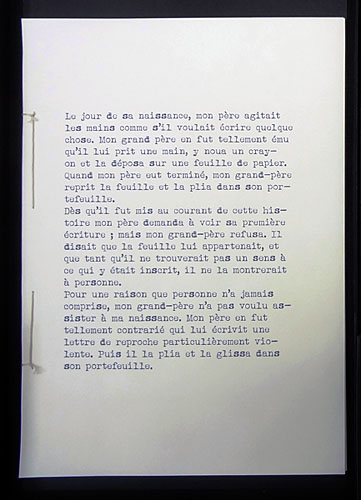 Le jour de sa naissance, mon père agitait
les mains comme s'il voulait écrire quelque
chose. Mon grand père en fut tellement ému
qu'il lui prit une main, y noua un cray-
on et la déposa sur une feuille de papier.
Quand mon père eut terminé, mon grand-père
reprit la feuille et la plia dans son por-
tefeuille.
Dès qu'il fut mis au courant de cette his-
toire mon père demanda à voir sa première
écriture ; mais mon grand-père refusa. Il
disait que la feuille lui appartenait, et
que tant qu'il ne trouverait pas un sens à
ce qui y était inscrit, il ne la montrerait
à personne.
Pour une raison que personne n'a jamais
comprise, mon grand-père n'a pas voulu as-
sister à ma naissance. Mon père en fut
tellement contrarié qui lui écrivit une
lettre de reproche particulièrement vio-
lente. Puis il la plia et la glissa dans
son portefeuille.